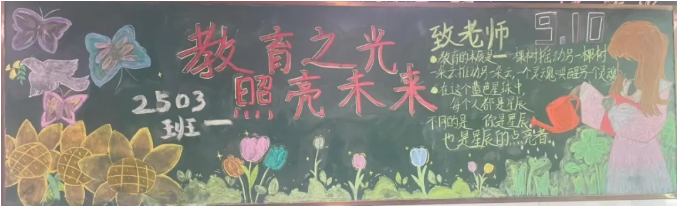 教育之光
照亮未来
2503
班
致老师
9.10
教育的本质是一棵树摇动另一棵树
一朵云推动另一朵云,一个灵魂唤醒另一个灵魂
在这个蓝色星球中
每个人都是星辰
不同的是 你是星辰
也是星辰的点亮者